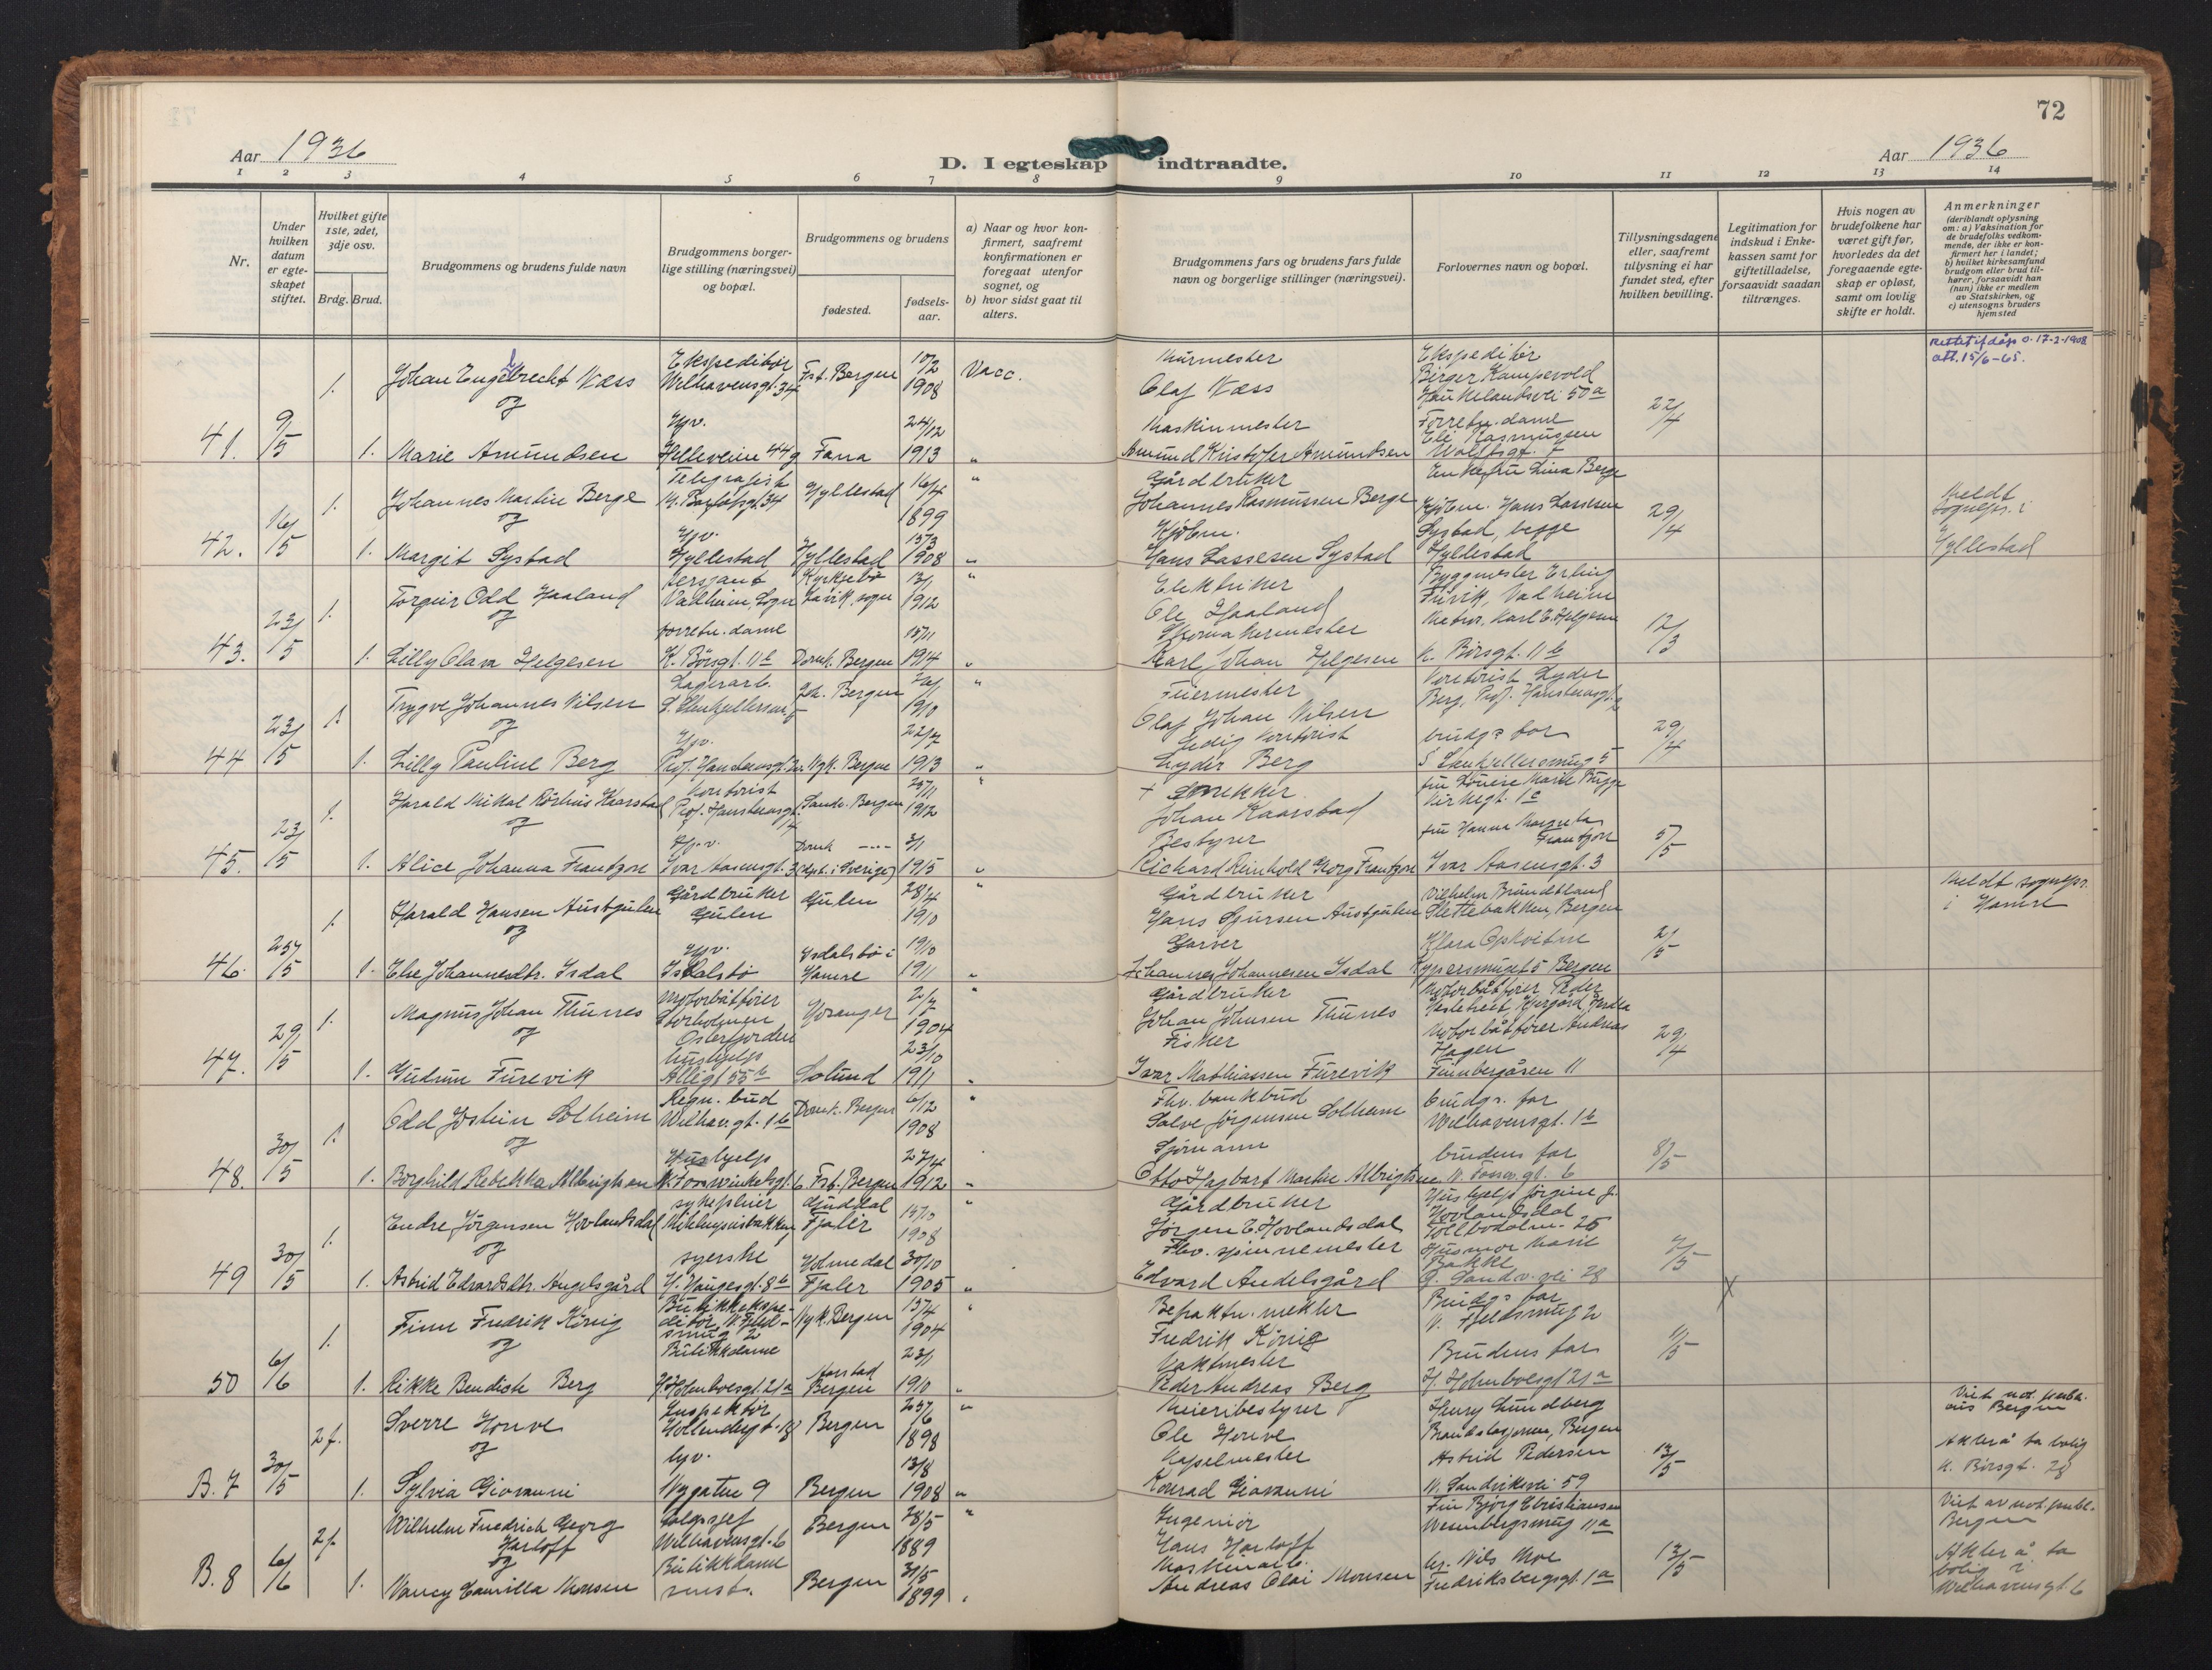 72
Aar 1936
D. I egteskap indtraadte.
Aar 1936
1 2 3 4 5 6 7 8 9 10 11 12 13 14
Nr.
Under hvilken datum er egteskapet stiftet.
Hvilket gifte 1ste, 2det, 3dje osv.
Brdg. Brud.
Brudgommens og brudens fulde navn
Brudgommens borgerlige stilling (næringsvei) og bopæl.
Brudgommens og brudens
fødested.
fødselsaar.
a) Naar og hvor konfirmert, saafremt konfirmationen er foregaat utenfor sognet, og
b) hvor sidst gaat til alters.
Brudgommens fars og brudens fars fulde navn og borgerlige stillinger (næringsvei).
Forlovernes navn og bopæl.
Tillysningsdagene eller, saafremt tillysning ei har fundet sted, efter hvilken bevilling.
Legitimation for indskud i Enkekassen samt for giftetilladelse, forsaavidt saadan tiltrænges.
Hvis nogen av brudefolkene har været gift før, hvorledes da det foregaaende egteskap er opløst, samt om lovlig skifte er holdt.
Anmerkninger
(deriblandt oplysning om: a) Vaksination for de brudefolks vedkommende, der ikke er konfirmert her i landet; b) hvilket kirkesamfund brudgom eller brud tilhører, forsaavidt han (hun) ikke er medlem av Statskirken, og c) utensogns bruders hjemsted
41. 9/5 1. Johan Engelbrecht Næss Ekspeditør Welhavensgt. 34 Fst. Bergen 10/2 1908 Vacc. Murmester Olaf Næss Ekspeditør Birger Kampevold Haukelandsvei 50a 22/4 Rettet if dåp o. 17-2-1908 att. 15/6-65.
og
1. Marie Amundsen Hjv. Helleveien 44g Fana 24/12 1913 " Maskinmester Amund Kristofer Amundsen Forretn.dame Eli Rasmussen Wolffsgt. 7
42. 16/5 1. Johannes Martin Berge Telegrafist Hyllestad 16/4 1899 " Gårdbruker Johannes Rasmussen Berge Enkefru Lina Berge 29/4 Meldt sognepr. i Hyllestad
og
1. Margit Systad Hjv. Hyllestad Hyllestad 15/3 1908 " Kjøbm. Hans Lassesen Systad Kjøbm. Hans Lassesen Systad, begge Hyllestad
43. 23/5 1. Torgeir Odd Haaland sersjant Vadheim, Sogn Kyrkjebø Lavik, sogn 13/1 1912 " Elektriker Ole Haaland Byggmester Erling Vadheim 12/3
og
1. Lilly Olava Helgesen forretn.dame K. Börsgt. 11b Domk. Bergen 15/11 1914 " Skomakermester Karl Johan Helgesen Karl E. Helgesen K. Börsgt. 11b
44 23/5 1. Trygve Johannes Nilsen Lagerarb. Joh. Bergen 1910 " Feiermester Olaf Johan Nilsen Kontorist Lyder Berg, Prof. Hansteensgt. 29/4
og
1. Lilly Pauline Berg Hjv. Prof. Hansteensgt. Nyk. Bergen 22/7 1913 " Kontorist Lyder Berg brudg.s far
45. 23/5 1. Harald Mikal Kaarstad Kontorist Prof. Hansteensgt. 14 Sandv. Bergen 25/11 1912 " + Snekker Johan Kaarstad fru Marie Bugge Kirkegt. 1c 5/5
og
1. Alice Johanna Frantzon Hjv. Ivar Aasensgt. 3 Domk (døpt i Sverige) 3/1 1915 " Bestyrer Richard Reinhold Georg Frantzon fru Hanna Frantzon Ivar Aasensgt. 3
46. 23/5 1. Harald Hansen Austgulen Gårdbruker Gulen Gulen 28/4 1910 " Gårdbruker Hans Sjursen Austgulen Vilhelm Brundtland Slettebakken, Bergen 2/5 Meldt sognepr. i Hamre
og
1. Else Johannesdtr. Isdal Hjv. Isdalstø Isdalstø i Hamre 19/10 1911 " Garver Johannes Johannesen Isdal Klara Opkvitne Kypersmuget 5 Bergen
47. 29/5 1. Magnus Johan Thunes motorbåtfører Storholmen Osterfjorden Hosanger 2/7 1904 " Gårdbruker Johan Johnsen Thunes Motorbåtfører Peder 29/4
og
1. Gudrun Furevik hushjelp Solund 23/10 1911 " Fisker Ivar Mathiassen Furevik Motorbåtfører Andreas Hagen Finnbergåsen 11
48. 30/5 1. Odd Jostein Solheim Regn. bud Welhav.gt. 1b Domk. Bergen 6/12 1908 " Fhv. bankbud Salve Jörgensen Solheim brudgs. far Welhavensgt. 1b 8/5
og
1. Borghild Rebekka Albrigtsen Hushjelp N. Fosswinkelsgt. 6 Fst. Bergen 27/4 1912 " Sjömann Otto Hagbart Martin Albrigtsen brudens far N. Fossw.gt. 6
49 30/5 1. Endre Jörgensen Hovlandsdal sykepleier Guddal Fjaler 15/10 1908 " Gårdbruker Jörgen E. Hovlandsdal Hushjelp Jörgine J. Hovlandsdal Tollbodalm. 25 7/5
og
1. Astrid Edvardsdtr. Angelsgård syerske H. Haugesgt. 8b Holmedal Fjaler 30/10 1905 " Fhv. spinnemester Edvard Husmor Marie Bakke 28 X
50 6/6 1. Finn Fredrik König Butikkekspeditör Nyk. Bergen 15/4 1904 " Befraktn. mekler Fredrik König Brudgs far 11/5
og
1. Rikke Bendiste Berg Butikkdame H. Holmboesgt. 21a Aarstad Bergen 23/1 1910 " Vaktmester Peder Andreas Berg Brudens far H. Holmboesgt 21a
B. 7 30/5 2g. Sverre Houve Inspektör Bergen 25/6 1898 " Meieribestyrer Ole Houve Henry Lundberg Brandstasjonen, Bergen 13/5 Viet not. publ. Bergen
og
1. Sylvia Giovanni hjv. Nygaten 9 Bergen 13/8 1908 " Kapelmester Konrad Giovanni Astrid Pedersen N. Sandviksvei 59 Akter å ta bolig K. Börsgt. 28
B. 8 6/6 2g. Wilhelm Fredrich Georg Harloff Salgssjef Welhavensgt. 6 Bergen 28/5 1889 " Ingeniör Hans Harloff Fru Bjørg Christiansen Wesenbergsmug 11a 13/5 Viet av not. publ. Bergen
og
1. Nancy Camilla Monsen Butikkdame smst. Bergen 31/5 1899 " Maskinarb. Andreas Olai Monsen hr. Nils Moe Fredriksbergsgt. 1a Akter å ta bolig i Welhavensgt. 6